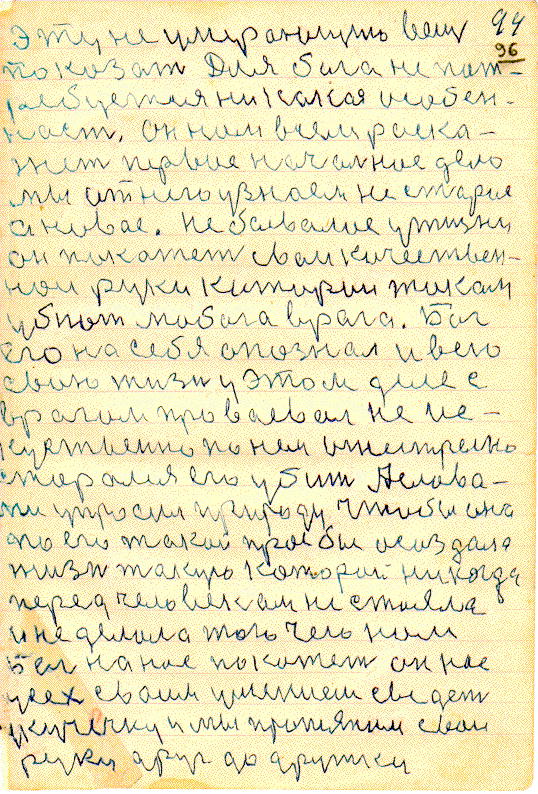 94
96
эту не умирающую вещ
показат Для бога не пот-
ребуется никакая особен-
ност. он нам всем раска-
жет первое началное дело
мы от него узнаем не старое
а новое. Небывалое у жизни
он покажет свои качествен-
нои руки которыи токам
убют любога врага. Бог
его на себя опознал и всю
свою жизн у этом деле с
врагом провоевал не ис-
куственно по нем
старался его убит А слова-
ми упросил природу чтобы она
по его такой прозбы создала
жизн такую которой никогда
перед человекам не стояла
и не делала того чего нам
Бог на нас покажет он нас
усех своим умением сведет
укучечку и мы протяним свои
руки друг до дружки